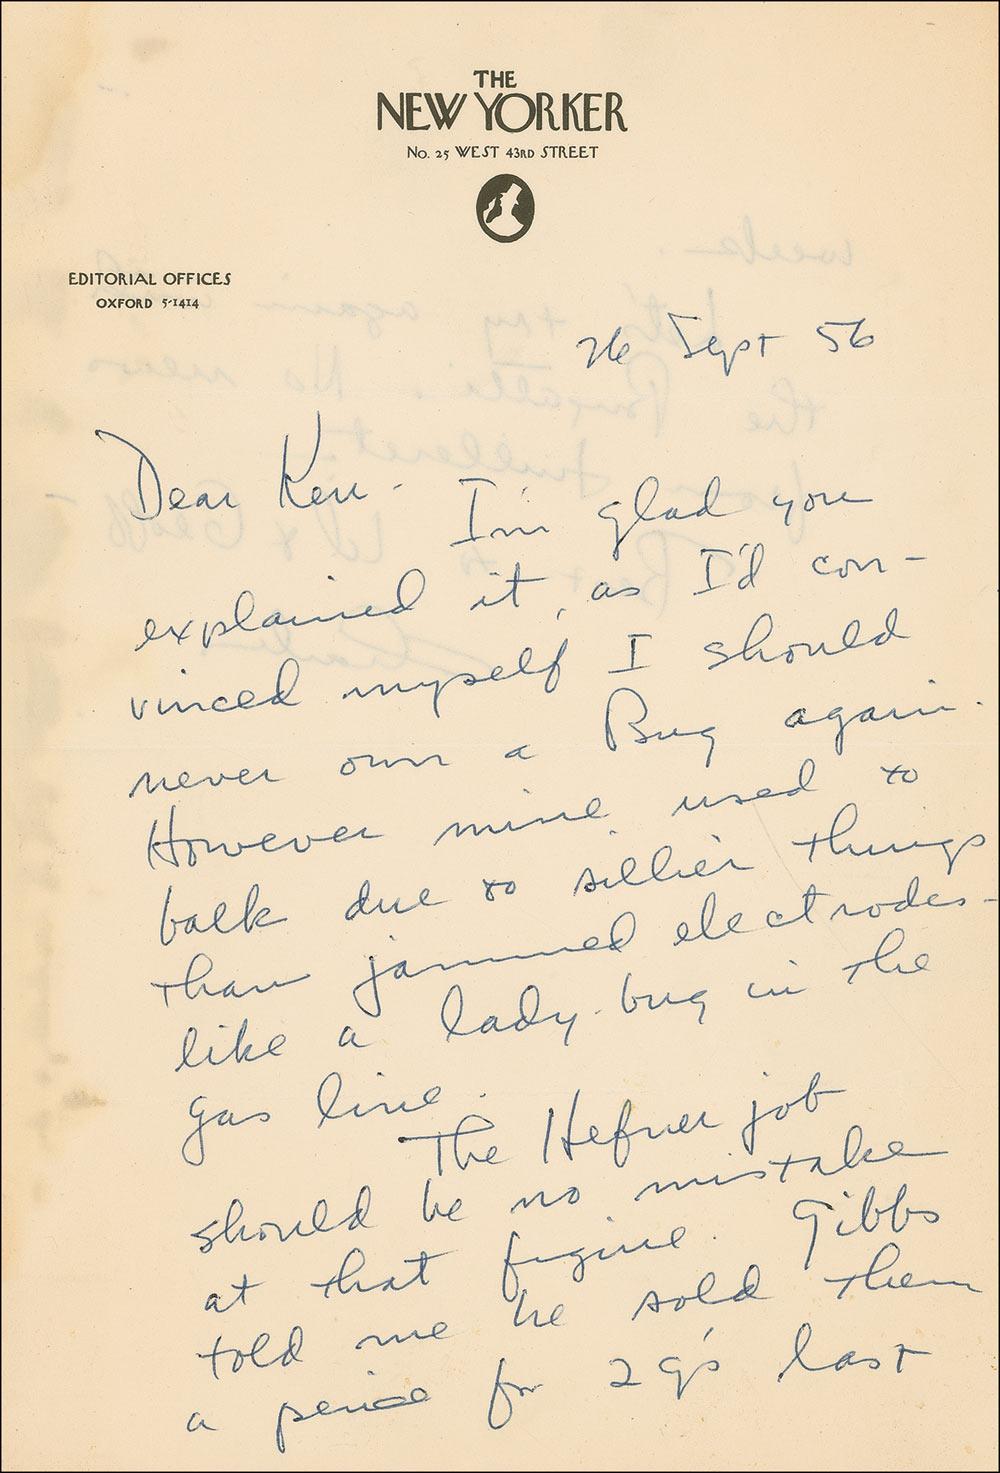 THE
NEW YORKER
No. 25 WEST 43RD STREET
EDITORIAL OFFICES
OXFORD 5-1414
26 Sept 56
Dear Ken -
I'm glad you
explained it, as I'd con-
vinced myself I should
never own a Bug again.
However mine used to
balk due to sillier things
than jammed electrodes -
like a lady-bug in the
gas line.
The Hefner job
should be no mistake
at that figure. Gibbs
told me he sold them
a for 2 g's last
week.
Let's try again
the Bugatti. No news
from
Best to & Geoff -
Charles